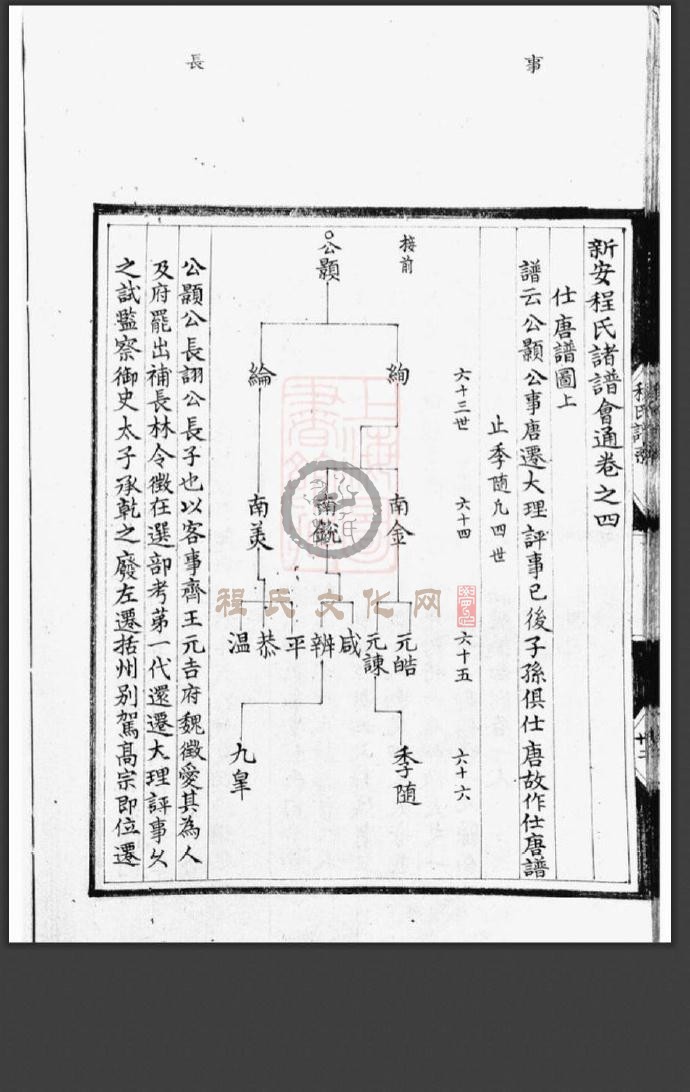 事
長
新安程氏諸譜會通卷之四
仕唐譜圖上
譜云公顥公事唐遷大理評事已後子孫俱仕唐故作仕唐譜
止季随凡四世
六十三世
六十四
六十五
六十六
接前
公顥
絢
綸
南金
南銳
南美
元皓
元諫
咸
辨
平
恭
温
季随
九皐
公顥公長詡公長子也以客事齊王元吉府魏徵愛其為人
及府罷出補長林令徵在選部考苐一代還遷大理評事乆
之試監察御史太子承乾之廢左遷括州别駕高宗即位遷
程氏文化网